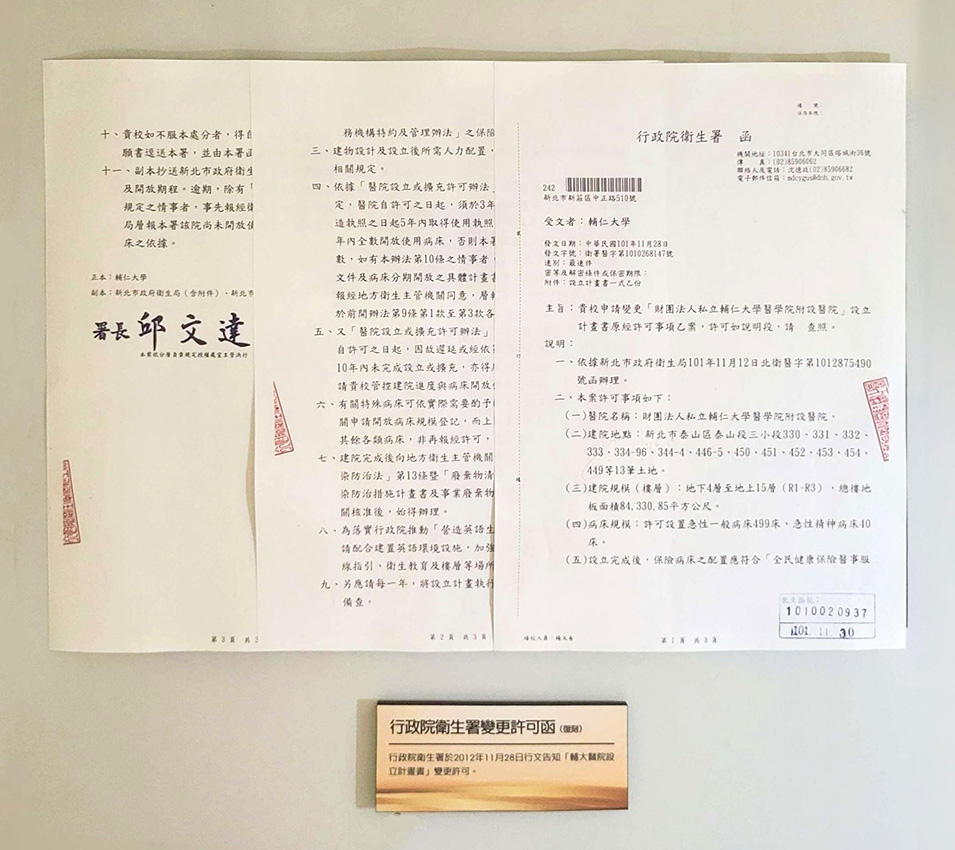 行政院衛生署　函
機關地址：10341台北市大同區塔城街36號
傳　　真：(02)85906062
聯絡人及電話：沈德政(02)85906682
電子郵件信箱：mdcygus@doh.gov.tw
242
新北市新莊區中正路510號
受文者：輔仁大學
發文日期：中華民國101年11月28日
發文字號：衛署醫字第1010268147號
速別：最速件
密等及解密條件或保密期限：
附件：設立計畫書一式乙份
主旨：貴校申請變更「財團法人私立輔仁大學醫學院附設醫院」設立
計畫書原經許可事項乙案，許可如說明段，請　查照。
說明：
一、依據新北市政府衛生局101年11月12日北衛醫字第1012875490
號函辦理。
二、本案許可事項如下：
(一)醫院名稱：財團法人私立輔仁大學醫學院附設醫院。
(二)建院地點：新北市泰山區泰山段三小段330、331、332、
333、334-96、344-4、446-5、450、451、452、453、454、
449等13筆土地。
(三)建院規模（樓層）：地下4層至地上15層（R1-R3），總樓地
板面積84,330.85平方公尺。
(四)病床規模：許可設置急性一般病床499床、急性精神病床40
床。
(五)設立完成後，保險病床之配置應符合「全民健康保險醫事服
1010020937
101. 11. 30
第 1 頁　共 3 頁
務機構特約及管理辦法」之保險
三、建物設計及設立後所需人力配置，
相關規定。
四、依據「醫院設立或擴充許可辦法」
定，醫院自許可之日起，須於3年
造執照之日起5年內取得使用執照
年內全數開放使用病床，否則本署
數，如有本辦法第10條之情事者，
文件及病床分期開放之具體計畫書
報經地方衛生主管機關同意，層轉
於前開辦法第9條第1款至第3款各
五、又「醫院設立或擴充許可辦法」
自許可之日起，因故遲延或經依
10年內未完成設立或擴充，亦得
請貴校管控建院進度與病床開放
六、有關特殊病床可依實際需要的予
關申請開放病床規模登記，而上
其餘各類病床，非再報經許可，
七、建院完成後向地方衛生主管機關
染防治法」第13條暨「廢棄物清
染防治措施計畫書及事業廢棄物
關核准後，始得辦理。
八、為落實行政院推動「營造英語生
請配合建置英語環境設施，加強
線指引、衛生教育及樓層等場所
九、另應請每一年，將設立計畫執行
備查。
第 2 頁　共 3 頁
十、貴校如不服本處分者，得自
願書逕送本署，並由本署函
十一、副本抄送新北市政府衛生
及開放期程。逾期，除有「
規定之情事者，事先報經衛
局層報本署該院尚未開放使
床之依據。
正本：輔仁大學
副本：新北市政府衛生局（含附件）、新北市
署長 邱文達
本案依分層負責規定授權處室主管決行
第 3 頁　共 3
行政院衛生署變更許可函（復刻）
行政院衛生署於2012年11月28日行文告知「輔大醫院設
立計畫書」變更許可。